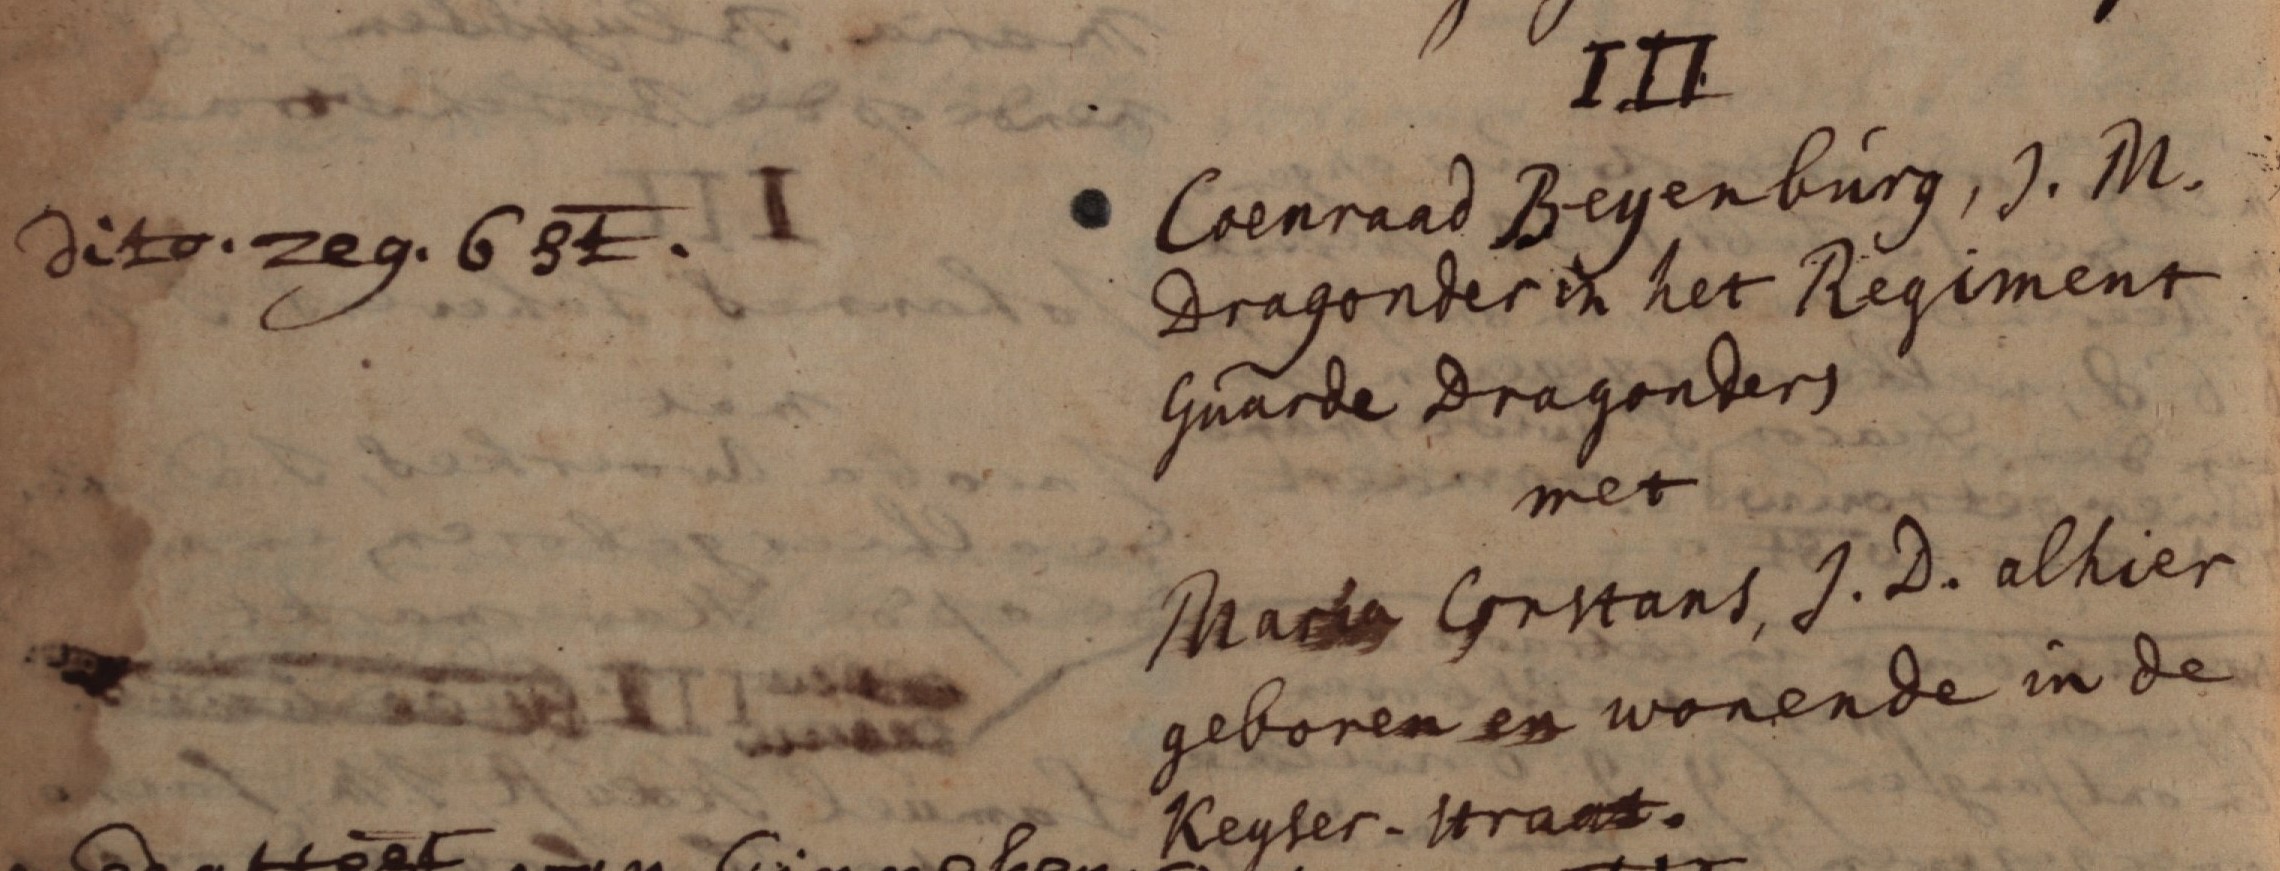 III
dito. zeg. 6 st.
Coenraad Beyenburg, J. M.
Dragonder in het Regiment
Guarde Dragonders
met
Maria Constans, J. D. alhier
geboren en wonende in de
Keyser-straat.